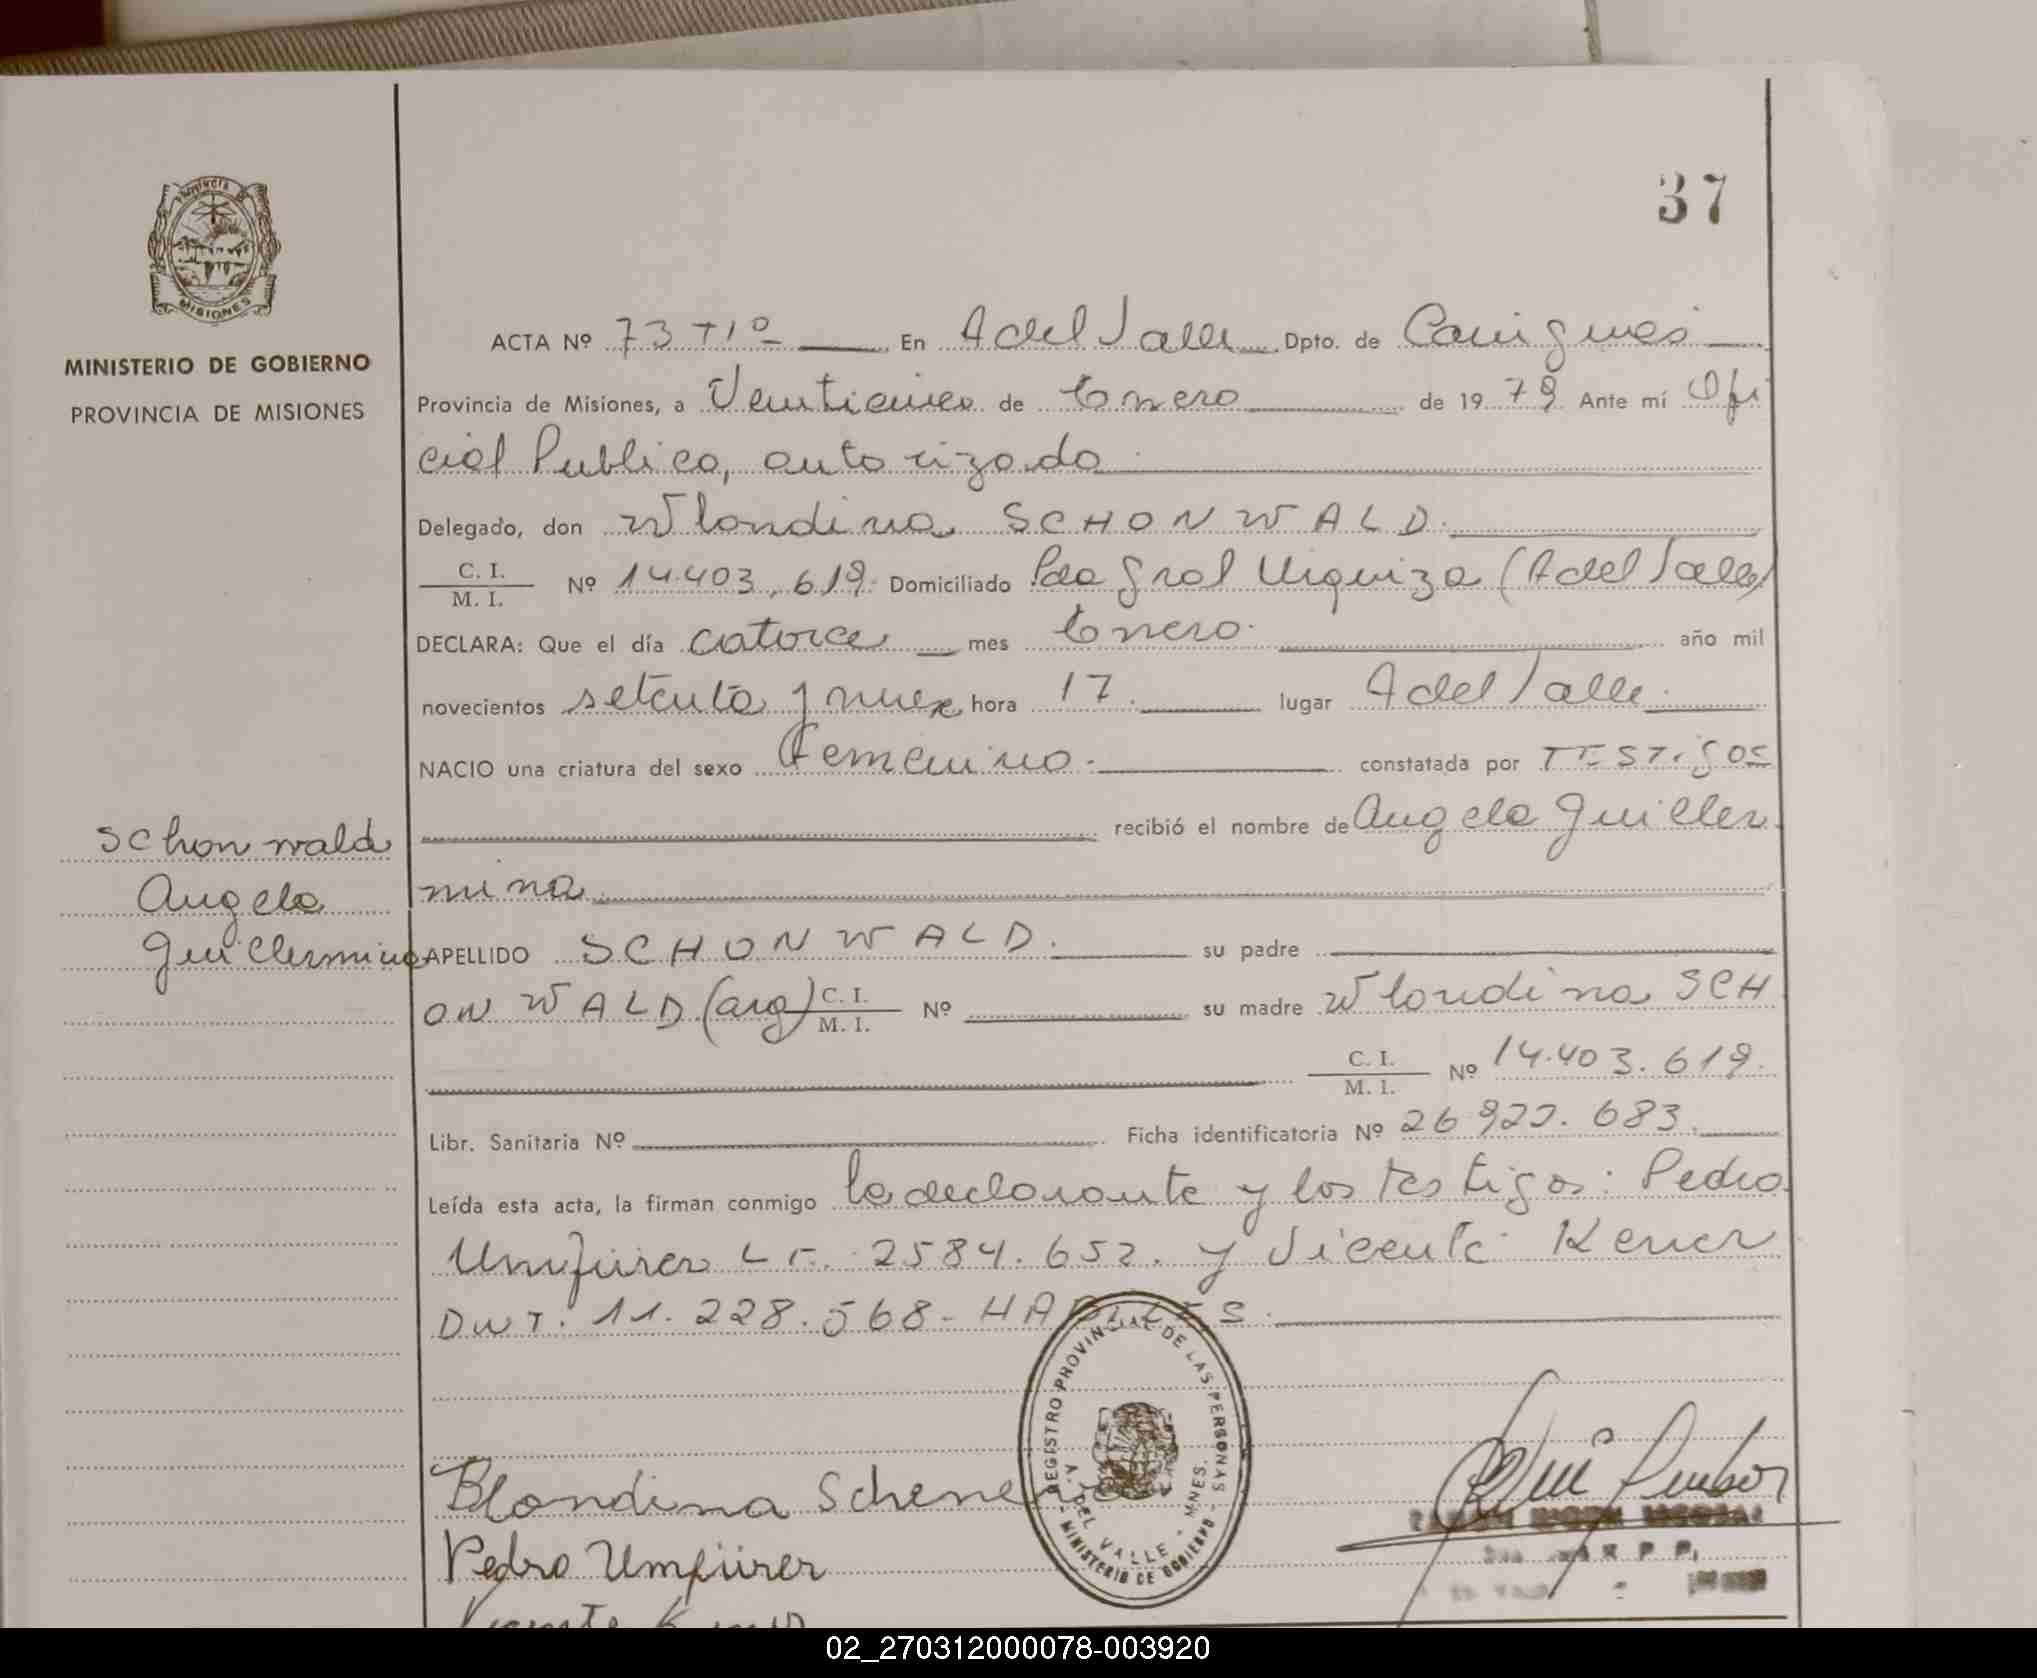 37
PROVINCIA DE
MISIONES
MINISTERIO DE GOBIERNO
PROVINCIA DE MISIONES
ACTA Nº 73 T1º En A del Valle Dpto. de Cainguas
Provincia de Misiones, a Venticinco de Enero de 1979 Ante mí Ofi
cial Publico, autorizado
Delegado, don Wlondina SCHONWALD.
C. I.
M. I. Nº 14.403.619. Domiciliado Pda Gral Urquiza (A del Valle)
DECLARA: Que el día catorce mes Enero. año mil
novecientos setenta y nueve hora 17. lugar A del Valle.
NACIO una criatura del sexo Femenino. constatada por TESTigos
recibió el nombre de Angela Guiller
mina
Schonwald
Angela
Guillermina
APELLIDO SCHONWALD. su padre
ONWALD (arg) C. I.
M. I. Nº su madre Wlondina SCH
C. I.
M. I. Nº 14.403.619.
Libr. Sanitaria Nº Ficha identificatoria Nº 26.922.683.
Leída esta acta, la firman conmigo la declarante y los testigos: Pedro
Umfürer L E. 2584.652. y Vicente Kener
DNI. 11.228.568- HABILES.
REGISTRO PROVINCIAL DE LAS PERSONAS
A. DEL VALLE - MNES.
- MINISTERIO DE GOBIERNO -
Blondina Schene
Pedro Umfürer
Vicente
02_270312000078-003920